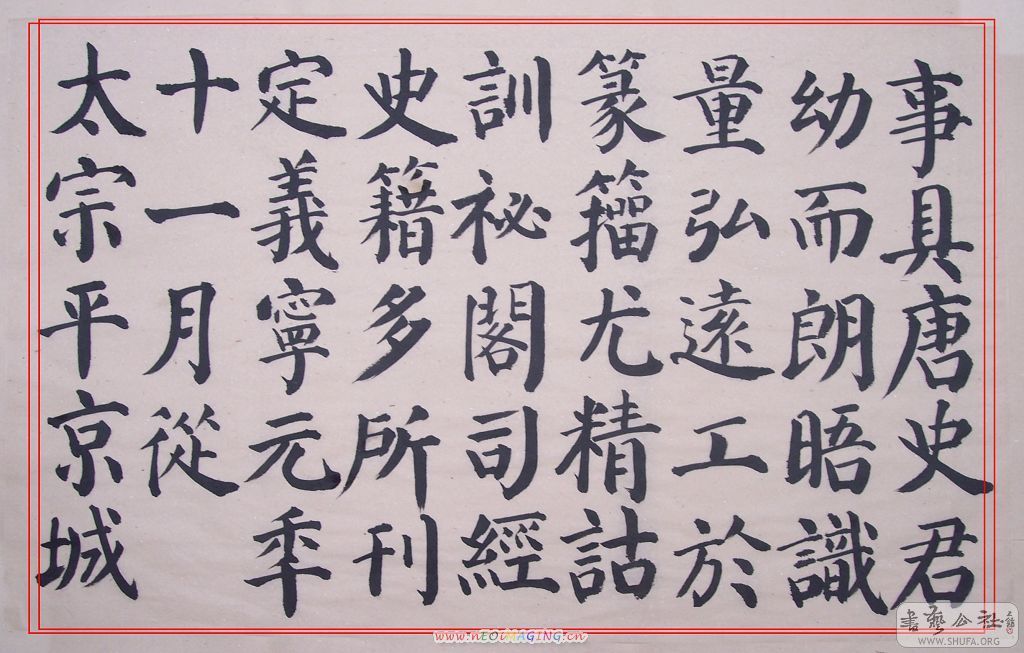 事具唐史君
幼而朗晤識
量弘遠工於
篆籀尤精詁
訓祕閣司經
史籍多所刊
定義寧元年
十一月從
太宗平京城
書藝公社
WWW.SHUFA.ORG
www.nEOiMAGING.cn